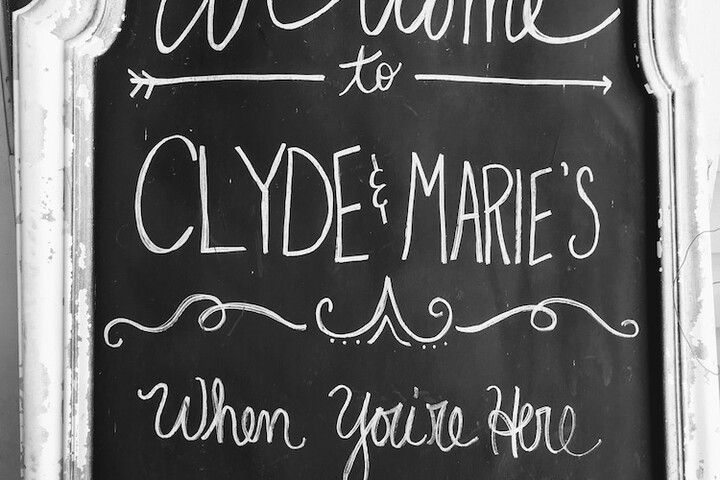 Welcome
to
CLYDE & MARIE'S
When You're Here